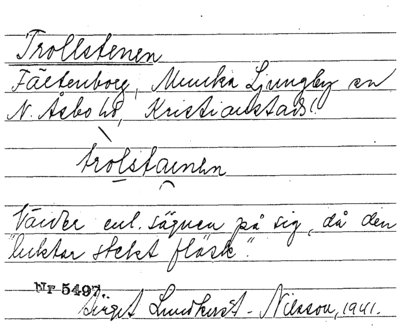 Trollstenen
Fältenborg, Munka Ljungby sn
N. Åsbo hd, Kristianstads l.
trolstainen
Vänder enl. sägnen på sig, då den
"luktar stekt fläsk".
Nr 5497.
Birget Lundkvist-Nilsson, 1941.